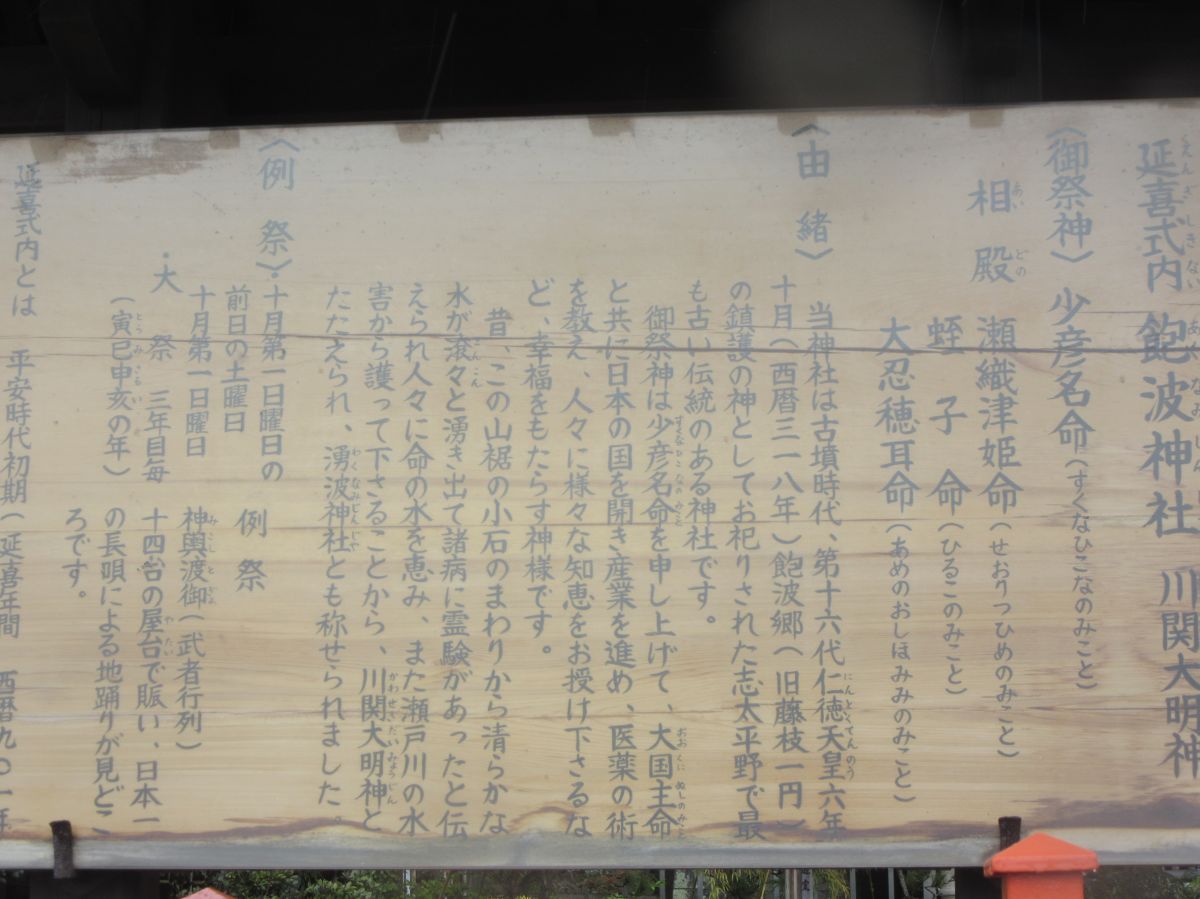 延喜式内 飽波神社 川関大明神
《御祭神》 少彦名命(すくなひこなのみこと)
相殿 瀬織津姫命(せおりつひめのみこと)
蛭子命(ひるこのみこと)
大忍穂耳命(あめのおしほみみのみこと)
《由緒》 当神社は古墳時代、第十六代仁徳天皇六年
十月(西暦三一八年)飽波郷(旧藤枝一円)
の鎮護の神としてお祀りされた志太平野で最
も古い伝統のある神社です。
御祭神は少彦名命を申し上げて、大国主命
と共に日本の国を開き産業を進め、医薬の術
を教え、人々に様々な知恵をお授け下さるな
ど、幸福をもたらす神様です。
昔、この山裾の小石のまわりから清らかな
水が滾々と湧き出て諸病に霊験があったと伝
えられ人々に命の水を恵み、また瀬戸川の水
害から護って下さることから、川関大明神と
たたえられ、湧波神社とも称せられました。
《例祭》・十月第一日曜日の
前日の土曜日 例祭
十月第一日曜日
・大祭 三年目毎
(寅巳申亥の年)
神輿渡御(武者行列)
十四台の屋台で賑い、日本一
の長唄による地踊りが見どこ
ろです。
延喜式内とは 平安時代初期(延喜年間 西暦九〇一年